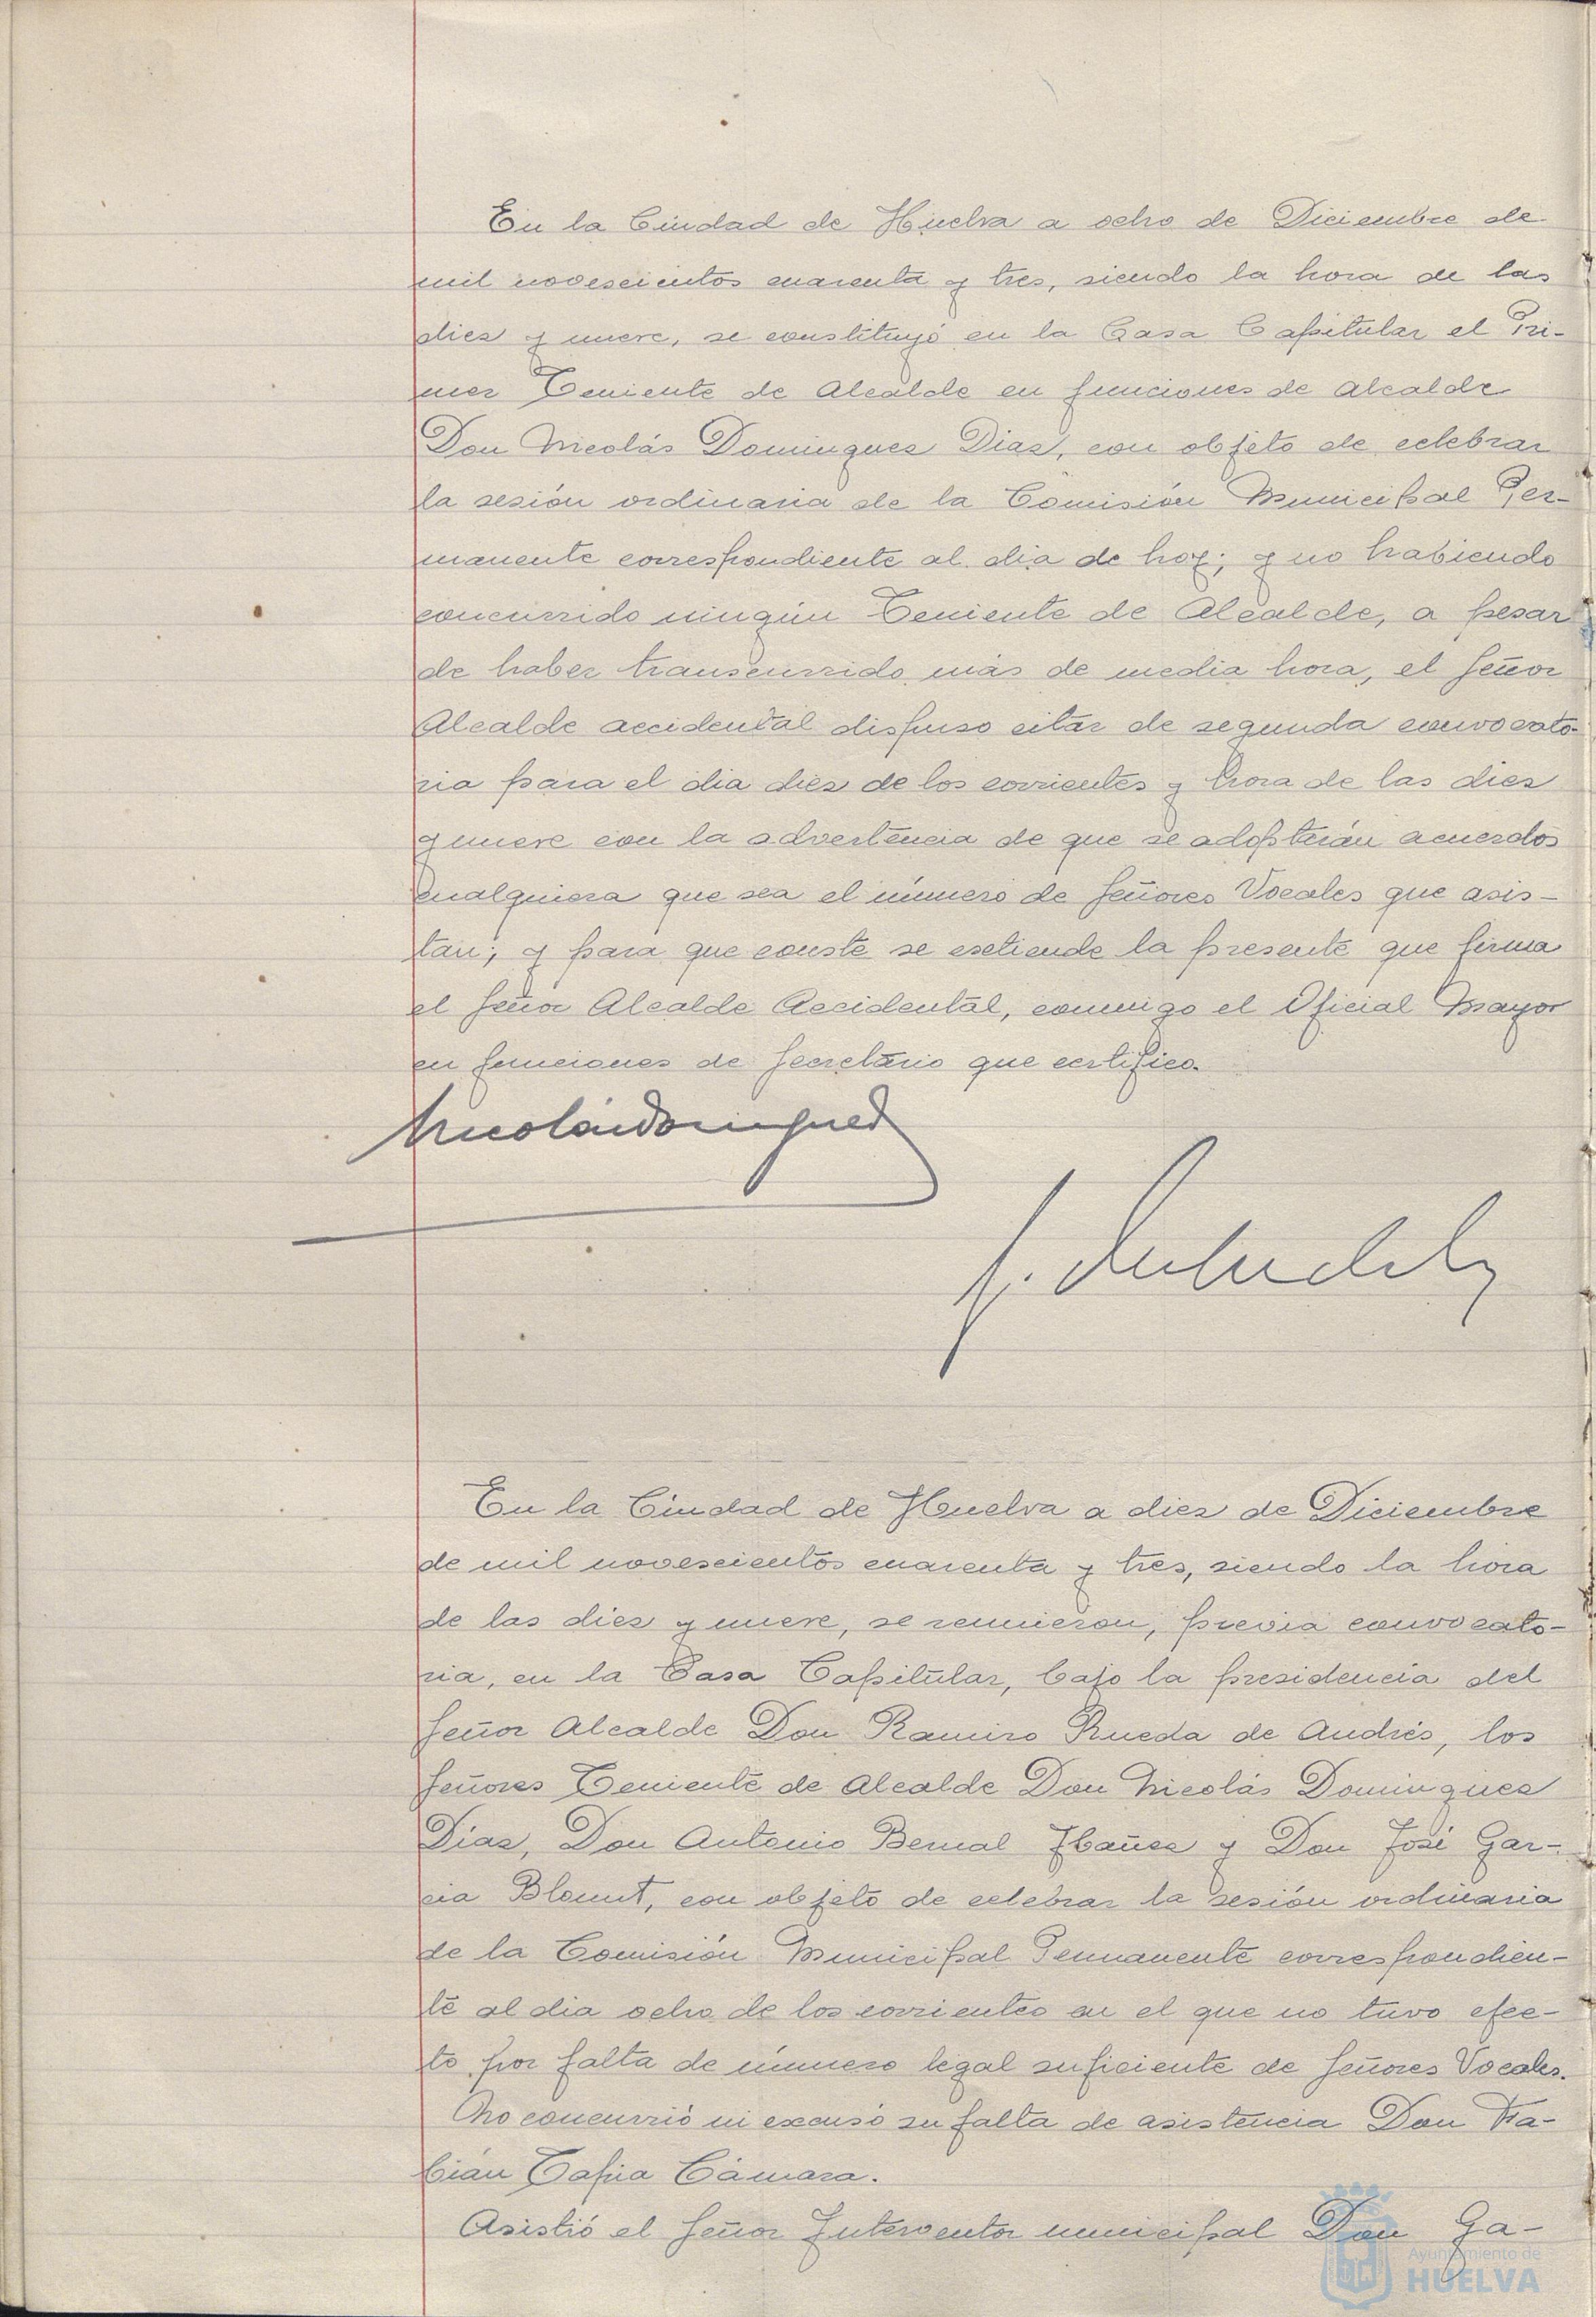 En la Ciudad de Huelva a ocho de Diciembre de
mil novescientos cuarenta y tres, siendo la hora de las
diez y nueve, se constituyó en la Casa Capitular el Pri-
mer Teniente de Alcalde en funciones de Alcalde
Don Nicolás Dominguez Diaz, con objeto de celebrar
la sesión ordinaria de la Comisión Municipal Per-
manente correspondiente al dia de hoy; y no habiendo
concurrido ningún Teniente de Alcalde, a pesar
de haber transcurrido más de media hora, el Señor
Alcalde accidental dispuso citar de segunda convocato-
ria para el dia diez de los corrientes y hora de las diez
y nueve con la advertencia de que se adoptarán acuerdos
cualquiera que sea el número de Señores Vocales que asis-
tan; y para que conste se esetiende la presente que firma
el Señor Alcalde Accidental, conmigo el Oficial Mayor
en funciones de Secretario que certifico.
Nicolás Dominguez
En la Ciudad de Huelva a diez de Diciembre
de mil novescientos cuarenta y tres, siendo la hora
de las diez y nueve, se reunieron, previa convocato-
ria, en la Casa Capitular, bajo la presidencia del
Señor Alcalde Don Ramiro Rueda de Andrés, los
Señores Teniente de Alcalde Don Nicolás Dominguez
Díaz, Don Antonio Bernal Ibañez y Don José Gar-
cia Blount, con objeto de celebrar la sesión ordinaria
de la Comisión Municipal Permanente correspondien-
te al dia ocho de los corrientes en el que no tuvo efec-
to por falta de número legal suficiente de Señores Vocales.
No concurrió ni excusó su falta de asistencia Don Fa-
bián Tapia Cámara.
Asistió el Señor Interventor municipal Don Ga-
Ayuntamiento de
HUELVA